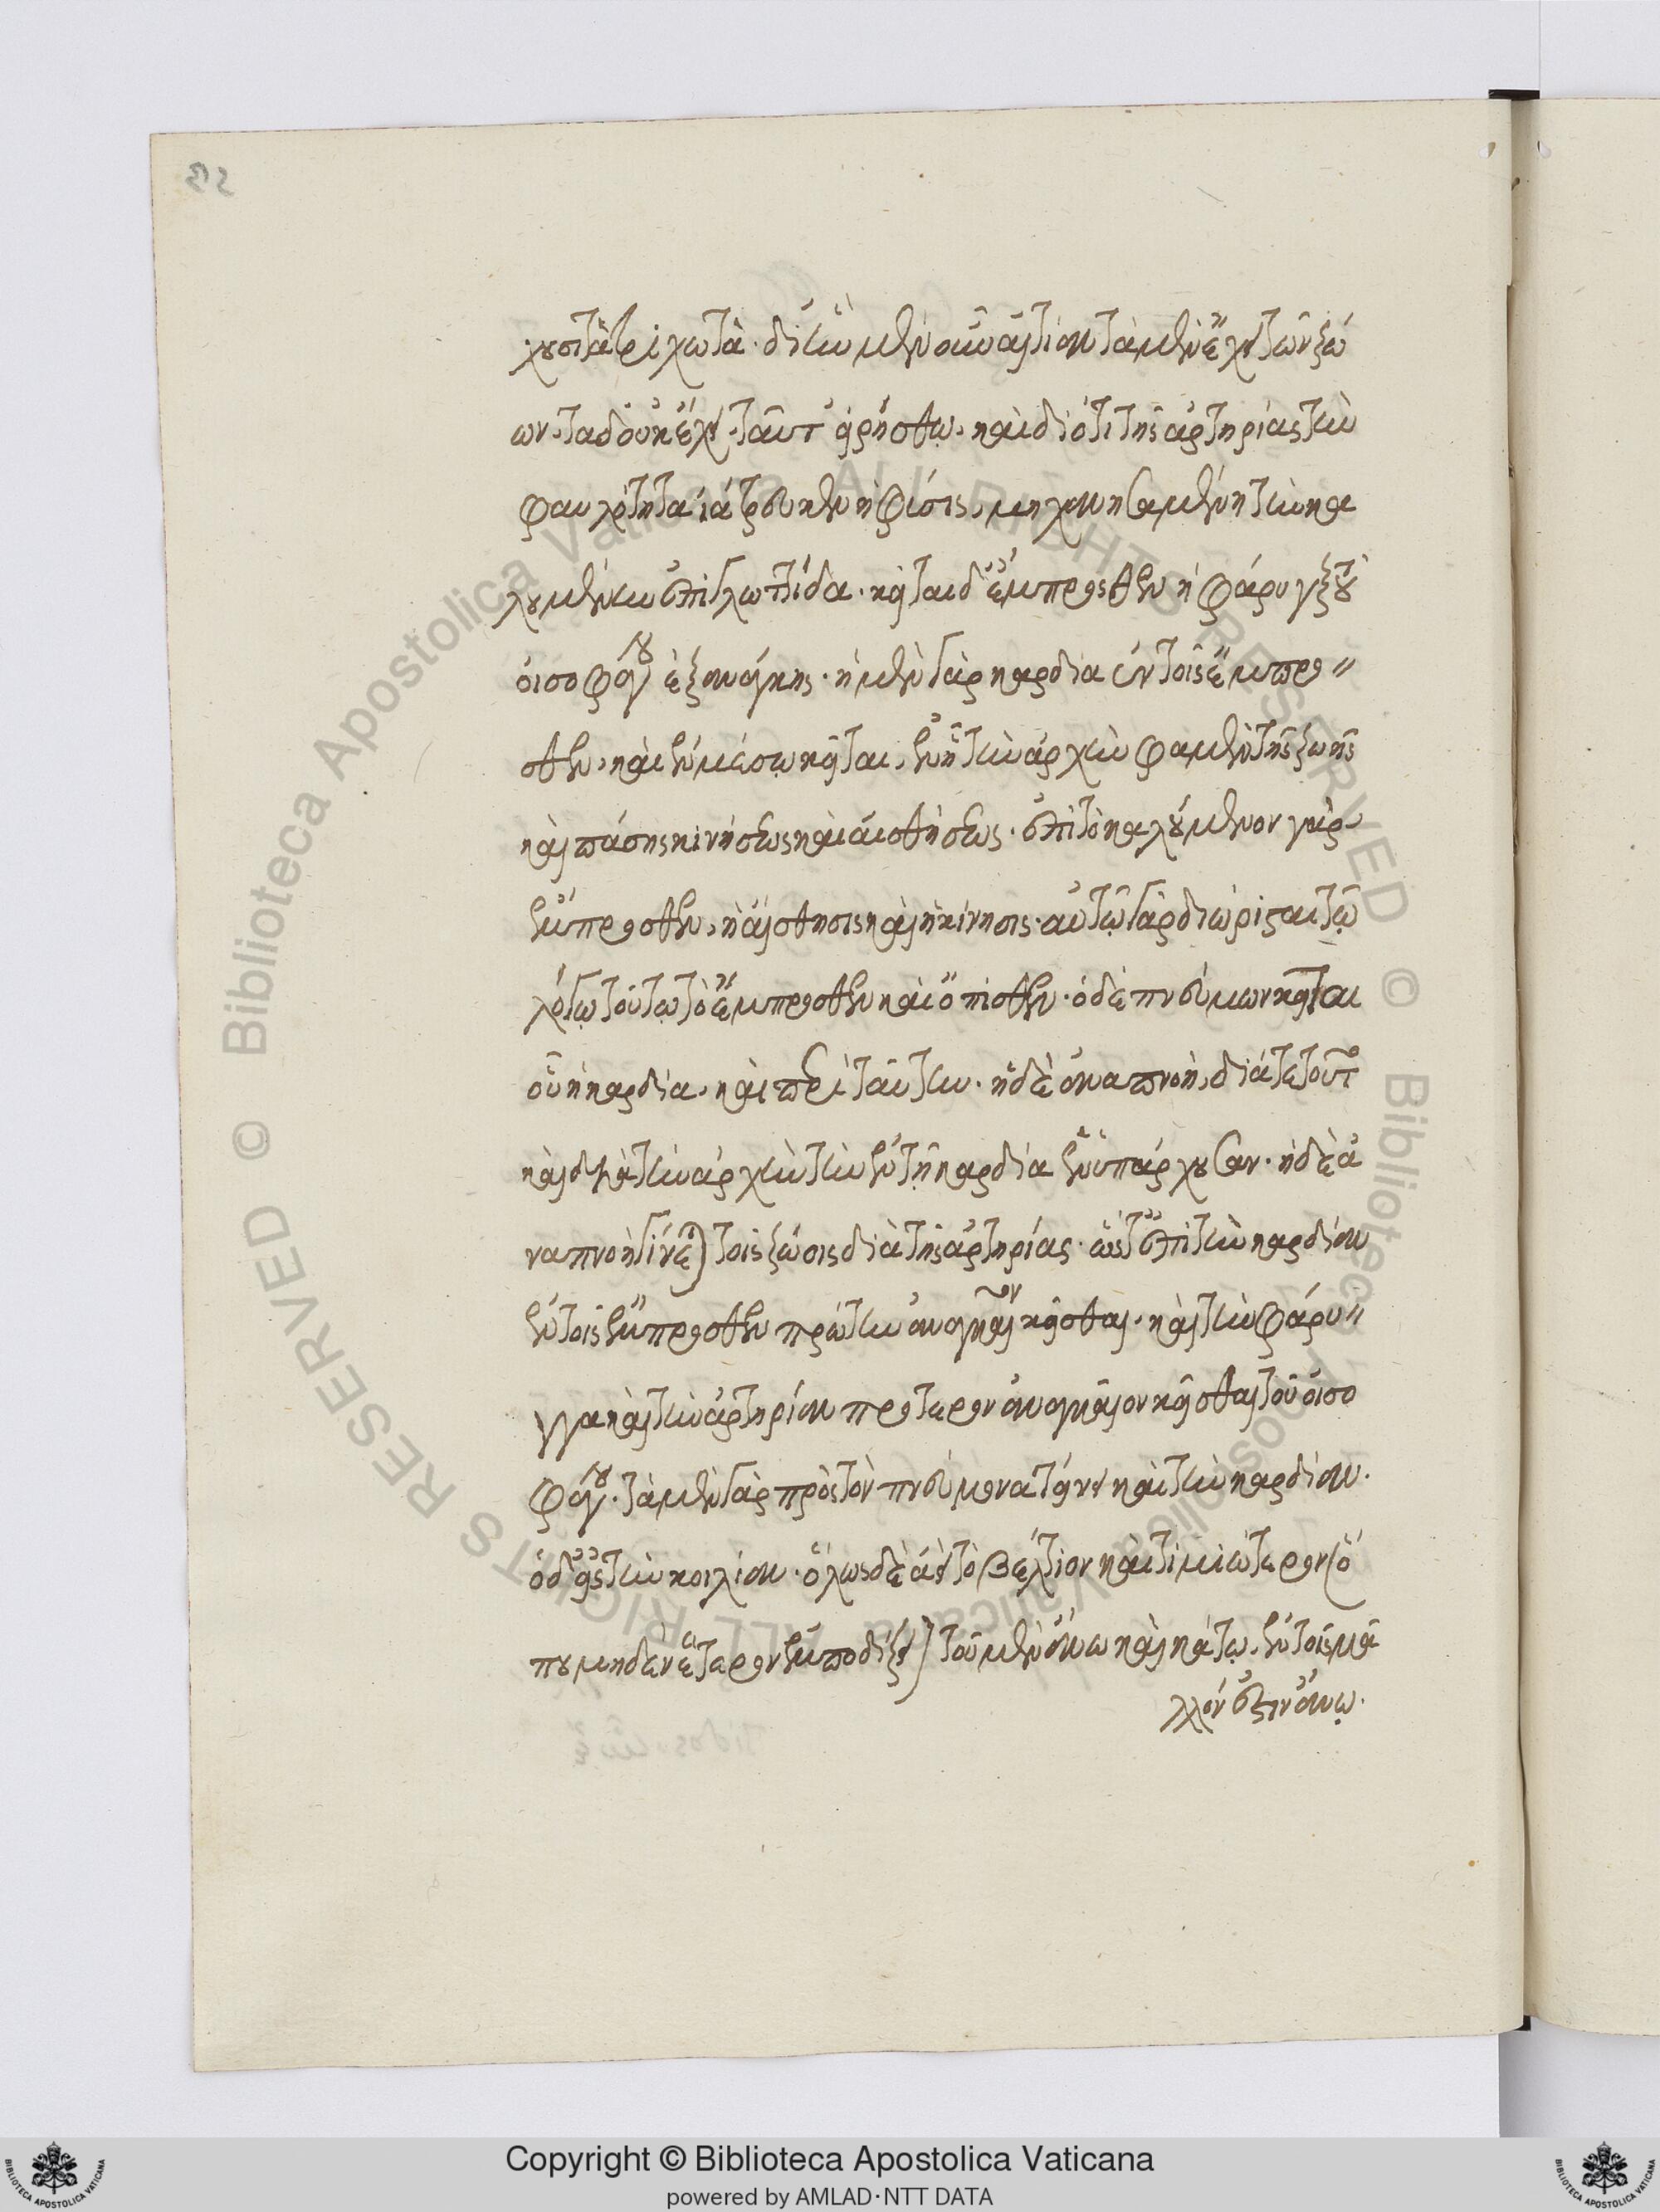 χουσι τὰ τριχωτὰ. δι' ἣν μὲν οὖν αἰτίαν τὰ μὲν ἔχει τῶν ζώ
ων. τὰ δ' οὐκ ἔχει. ταῦτ' εἰρήσθω. καὶ διότι τῆς ἀρτηρίας τὴν
φαυλότητα ἰάτρευκεν ἡ φύσις, μηχανησαμένη τὴν κα
λουμένην ἐπιγλωττίδα. κεῖται δ' ἔμπροσθεν ἡ φάρυγξ τοῦ
οἰσοφάγου ἐξ ἀνάγκης. ἡ μὲν γὰρ καρδία ἐν τοῖς ἔμπρο〃
σθεν, καὶ ἐν μέσῳ κεῖται, ἐν ᾗ τὴν ἀρχὴν φαμὲν τῆς ζωῆς
καὶ πάσης κινήσεως καὶ αἰσθήσεως. ἐπὶ τὸ καλούμενον γὰρ
ἔμπροσθεν, ἡ αἴσθησις καὶ ἡ κίνησις. αὐτῷ γὰρ διώρισται τῷ
λόγῳ τούτῳ τὸ ἔμπροσθεν καὶ ὄπισθεν. ὁ δὲ πνεύμων κεῖται
οὗ ἡ καρδία, καὶ περὶ ταύτην. ἡ δὲ ἀναπνοὴ, διά τε τοῦτο
καὶ διὰ τὴν ἀρχὴν τὴν ἐν τῇ καρδίᾳ ἐνυπάρχουσαν. ἡ δὲ ἀ
ναπνοὴ γίνεται τοῖς ζώοις διὰ τῆς ἀρτηρίας. ὥστ' ἐπεὶ τὴν καρδίαν
ἐν τοῖς ἔμπροσθεν πρώτην ἀναγκαῖον κεῖσθαι. καὶ τὴν φάρυ〃
γγα καὶ τὴν ἀρτηρίαν πρότερον ἀναγκαῖον κεῖσθαι τοῦ οἰσο
φάγου. τὰ μὲν γὰρ πρὸς τὸν πνεύμονα τείνει καὶ τὴν καρδίαν.
ὁ δ' εἰς τὴν κοιλίαν. ὅλως δὲ ἀεὶ τὸ βέλτιον καὶ τιμιώτερον ὅ
που μηδὲν ἕτερον ἐμποδίζει τοῦ μὲν ἄνω καὶ κάτω, ἐν τοῖς μᾶ
λλόν ἐστιν ἄνω.